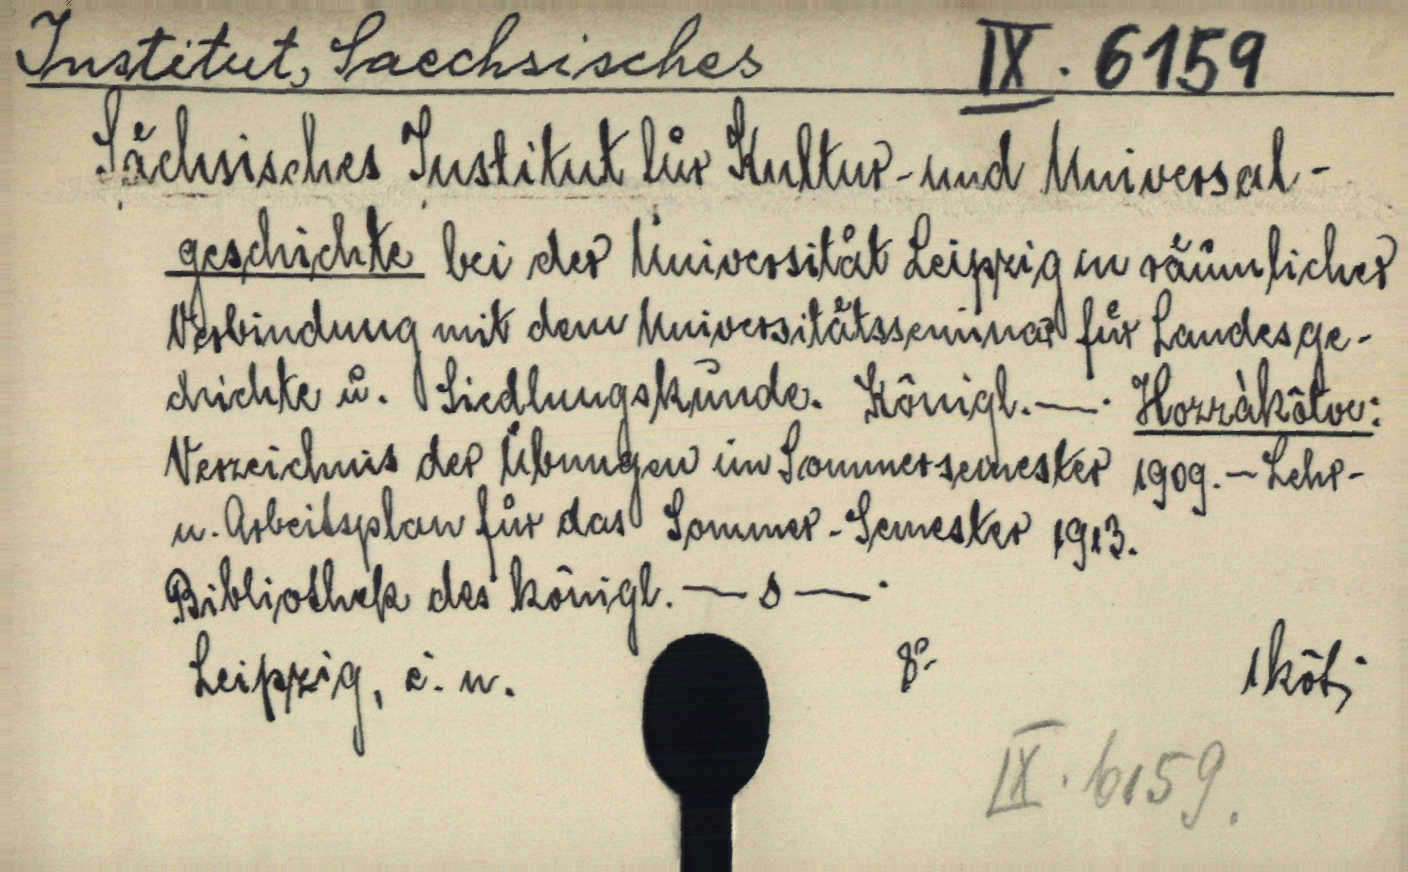 Institut, Saechsisches IX. 6159
Sächsisches Institut für Kultur- und Universal-
geschichte bei der Universität Leipzig in räumlicher
Verbindung mit dem Universitätsseminar für Landesge-
chichte u. Siedlungskunde. Königl. —. Hozzákötve:
Verzeichnis der Übungen im Sommersemester 1909. — Lehr-
u. Arbeitsplan für das Sommer-Semester 1913.
Bibliothek des königl. — s —.
Leipzig, é. n. 8° 1 köt;
IX. 6159.